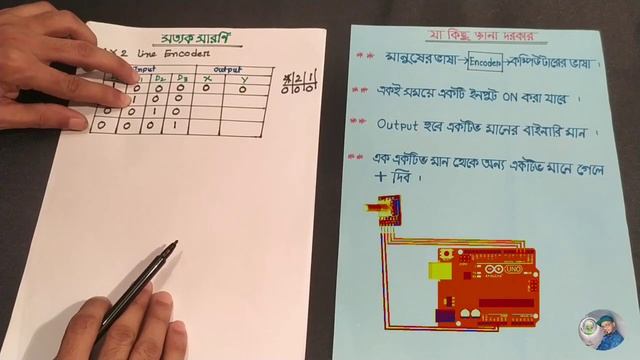 সত্যক সারণি
x 2 Line Encoder
Input Output
D₂ D₃ X Y
0 0 0 0 0
1 0 0
0 0 1 0
0 0 0 1
2 1
0 0 0
যা কিছু জানা দরকার
** মানুষের ভাষা → Encoder → কম্পিউটারের ভাষা ।
** একই সময়ে একটি ইনপুট ON করা যাবে ।
** Output হবে একটিভ মানের বাইনারি মান ।
** এক একটিভ মান থেকে অন্য একটিভ মানে গেলে
+ দিব ।
UNO